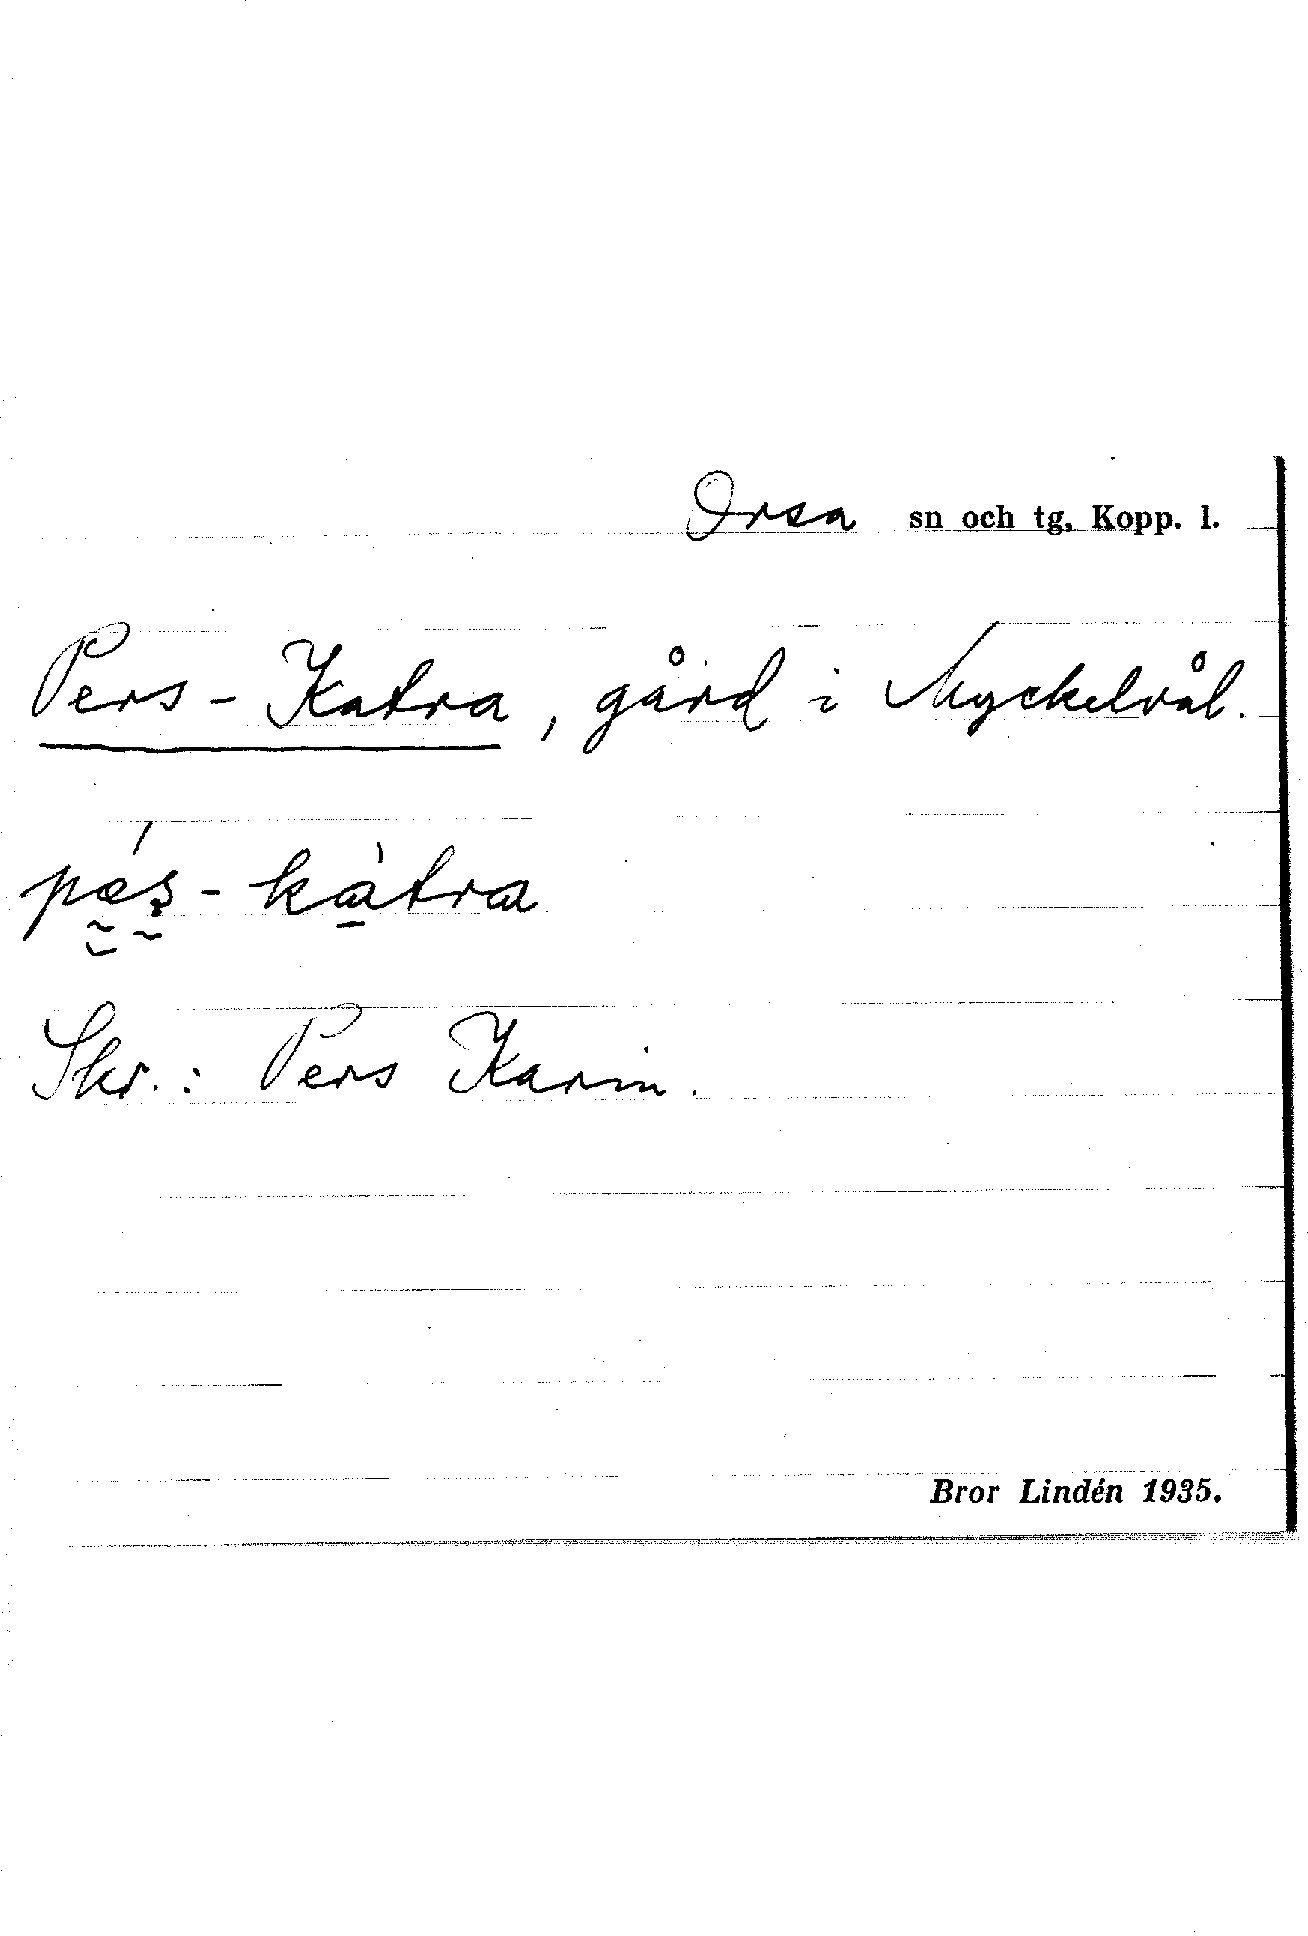 Orsa sn och tg, Kopp. l.
Pers-Katra, gård i Myckelvål.
pǽ̰ṣ-kàtra
Skr.: Pers Karin.
Bror Lindén 1935.